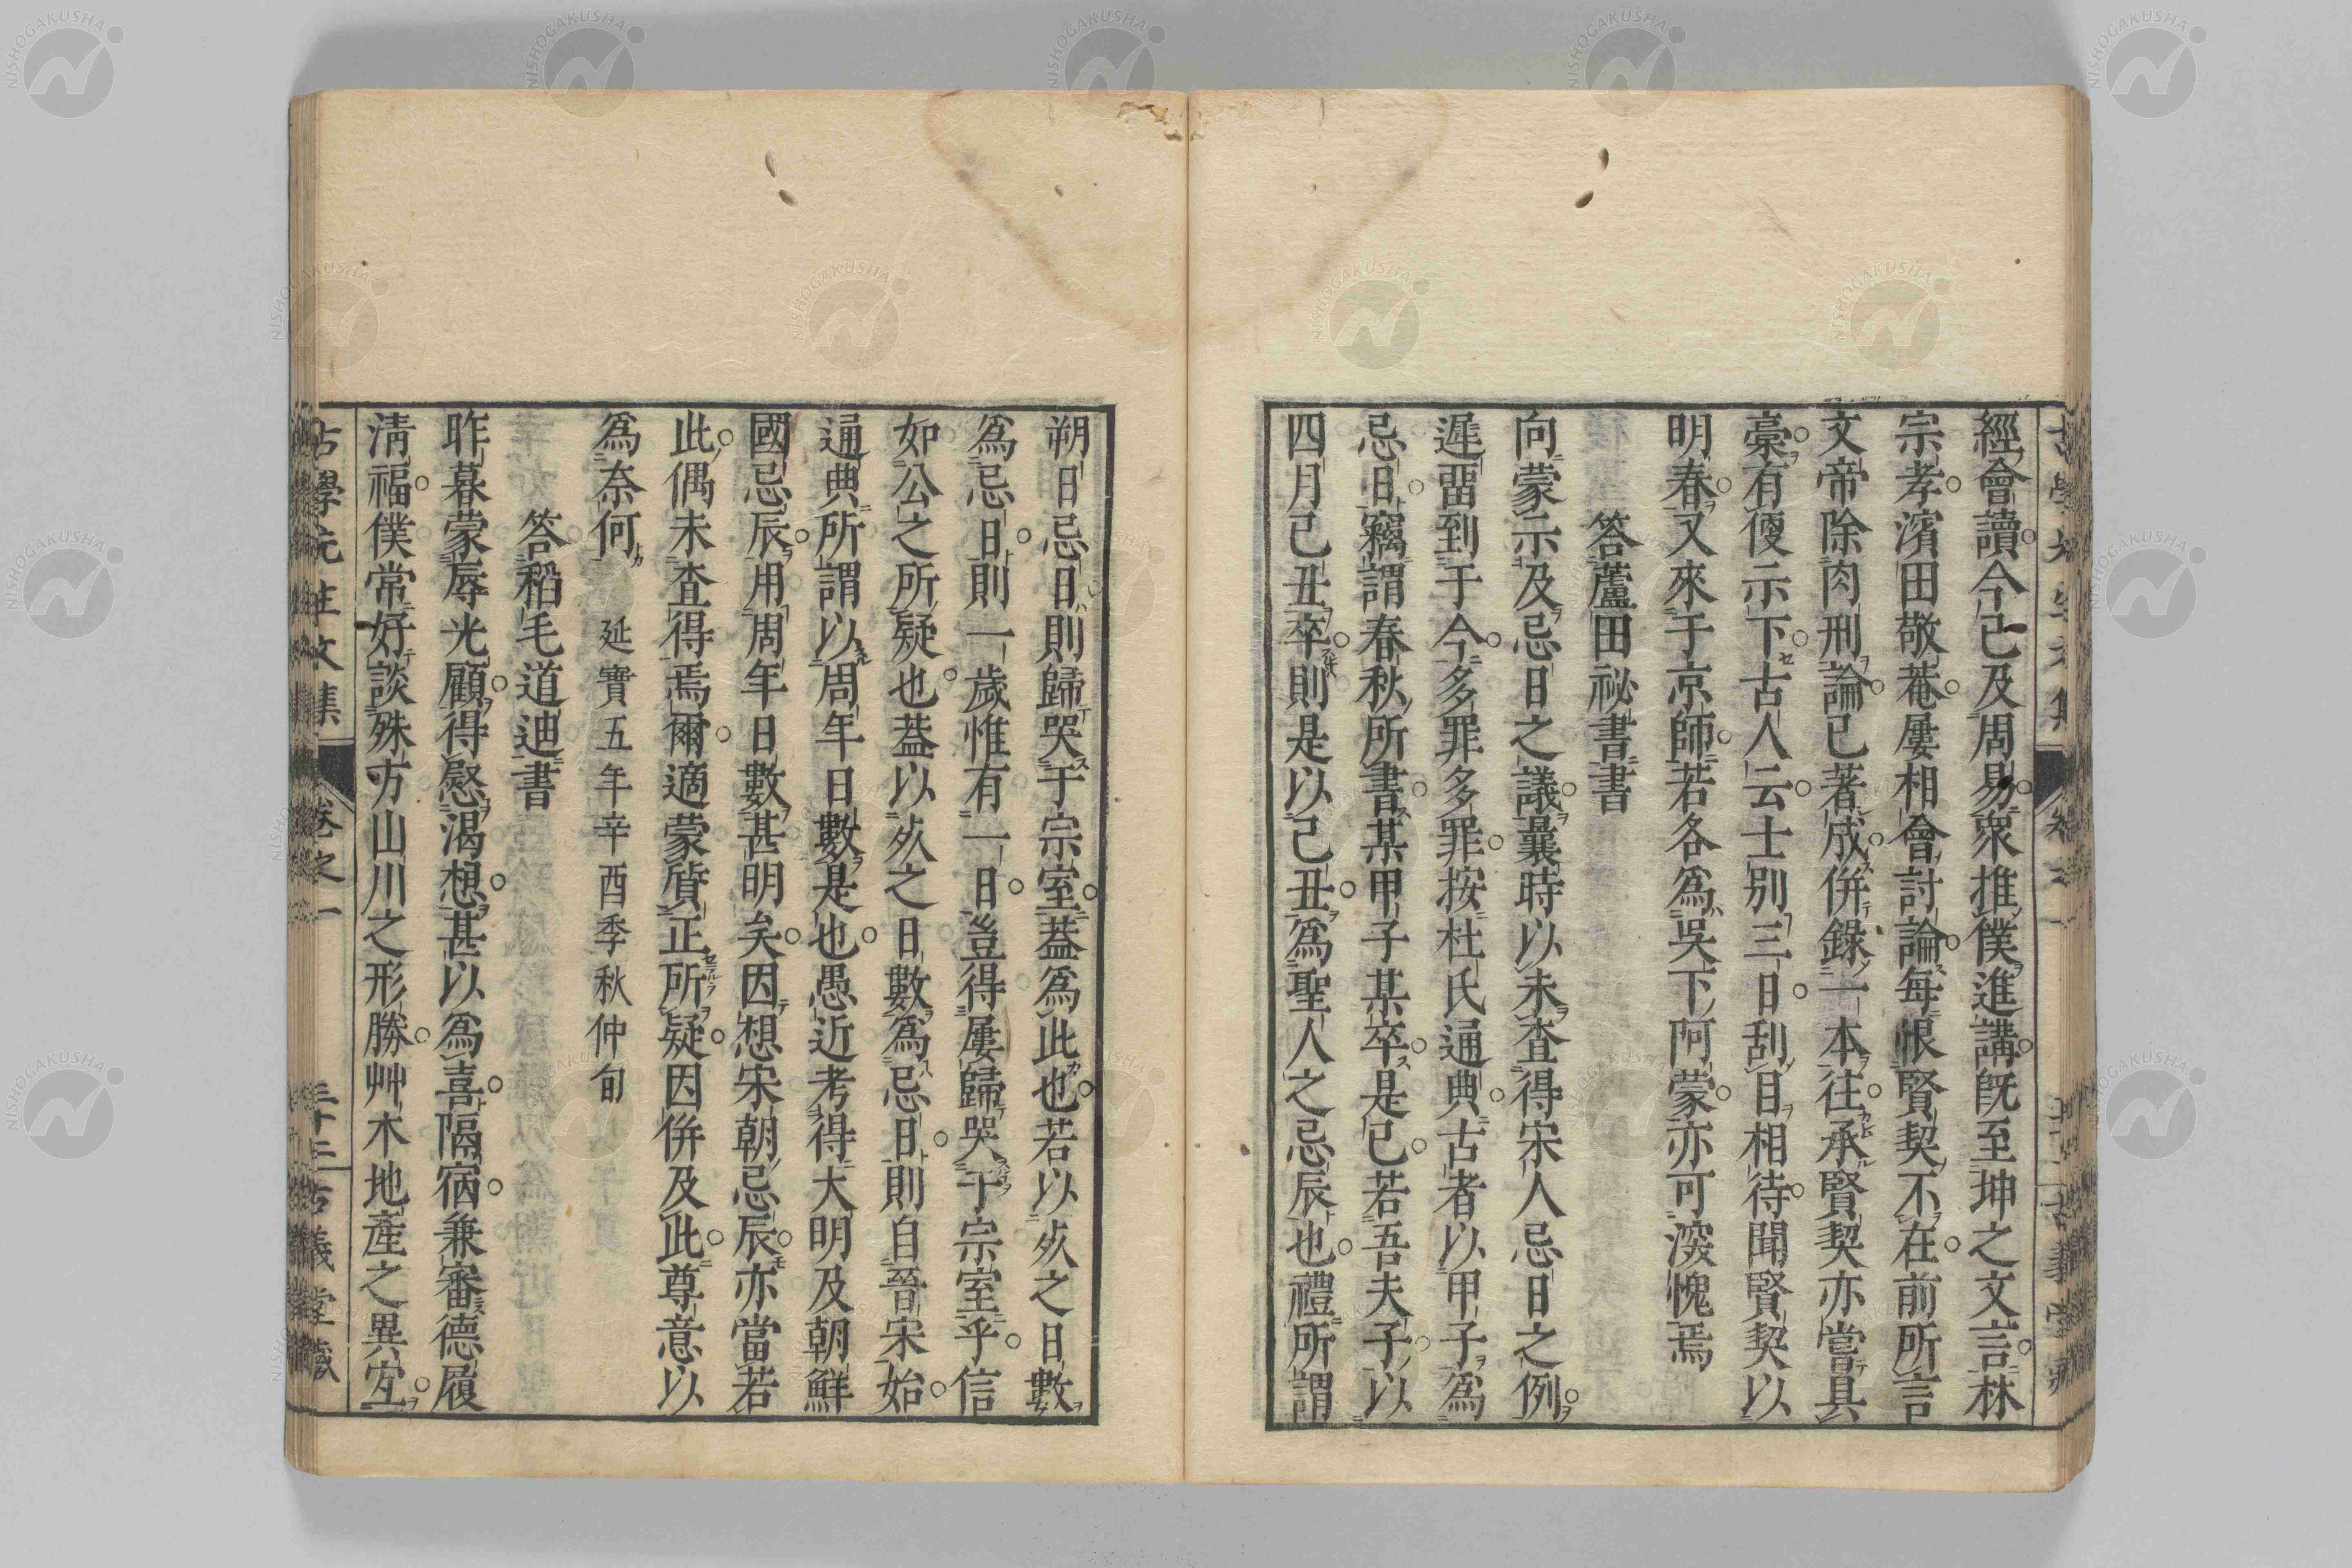 經會讀今已及周易衆推僕進講既至坤之文言林
宗孝濱田敬菴屢相會討論每恨賢契不在前所言
文帝除肉刑論已著成併錄一本往承賢契亦嘗具
稾有便示下古人云士別三日刮目相待聞賢契以
明春又來于京師若各爲吳下阿蒙亦可深愧焉
答蘆田祕書書
向蒙示及忌日之議曩時以未査得宋人忌日之例
遲畱到于今多罪多罪按杜氏通典古者以甲子爲
忌日竊謂春秋所書某甲子某卒是已若吾夫子以
四月己丑卒則是以己丑爲聖人之忌辰也禮所謂
朔日忌日則歸哭于宗室蓋爲此也若以死之日數
爲忌日則一歲惟有一日豈得屢歸哭于宗室乎信
如公之所疑也蓋以死之日數爲忌日則自晉宋始
通典所謂以周年日數是也愚近考得大明及朝鮮
國忌辰用周年日數甚明矣因想宋朝忌辰亦當若
此偶未査得焉爾適蒙質正所疑因併及此尊意以
爲奈何 延寶五年辛酉季秋仲旬
答稻毛道迪書
昨暮蒙辱光顧得慰渴想甚以爲喜隔宿兼審德履
淸福僕常好談殊方山川之形勝艸木地產之異宜
古學先生文集 卷之一 三十三 古義堂藏
NISHOGAKUSHA